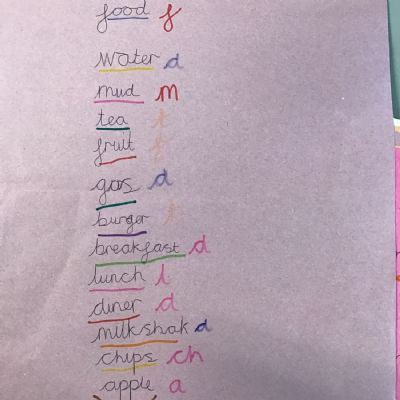 food f
water d
mud m
tea f
fruit f
gas d
burger f
breakfast d
lunch l
diner d
milkshak d
chips ch
apple a